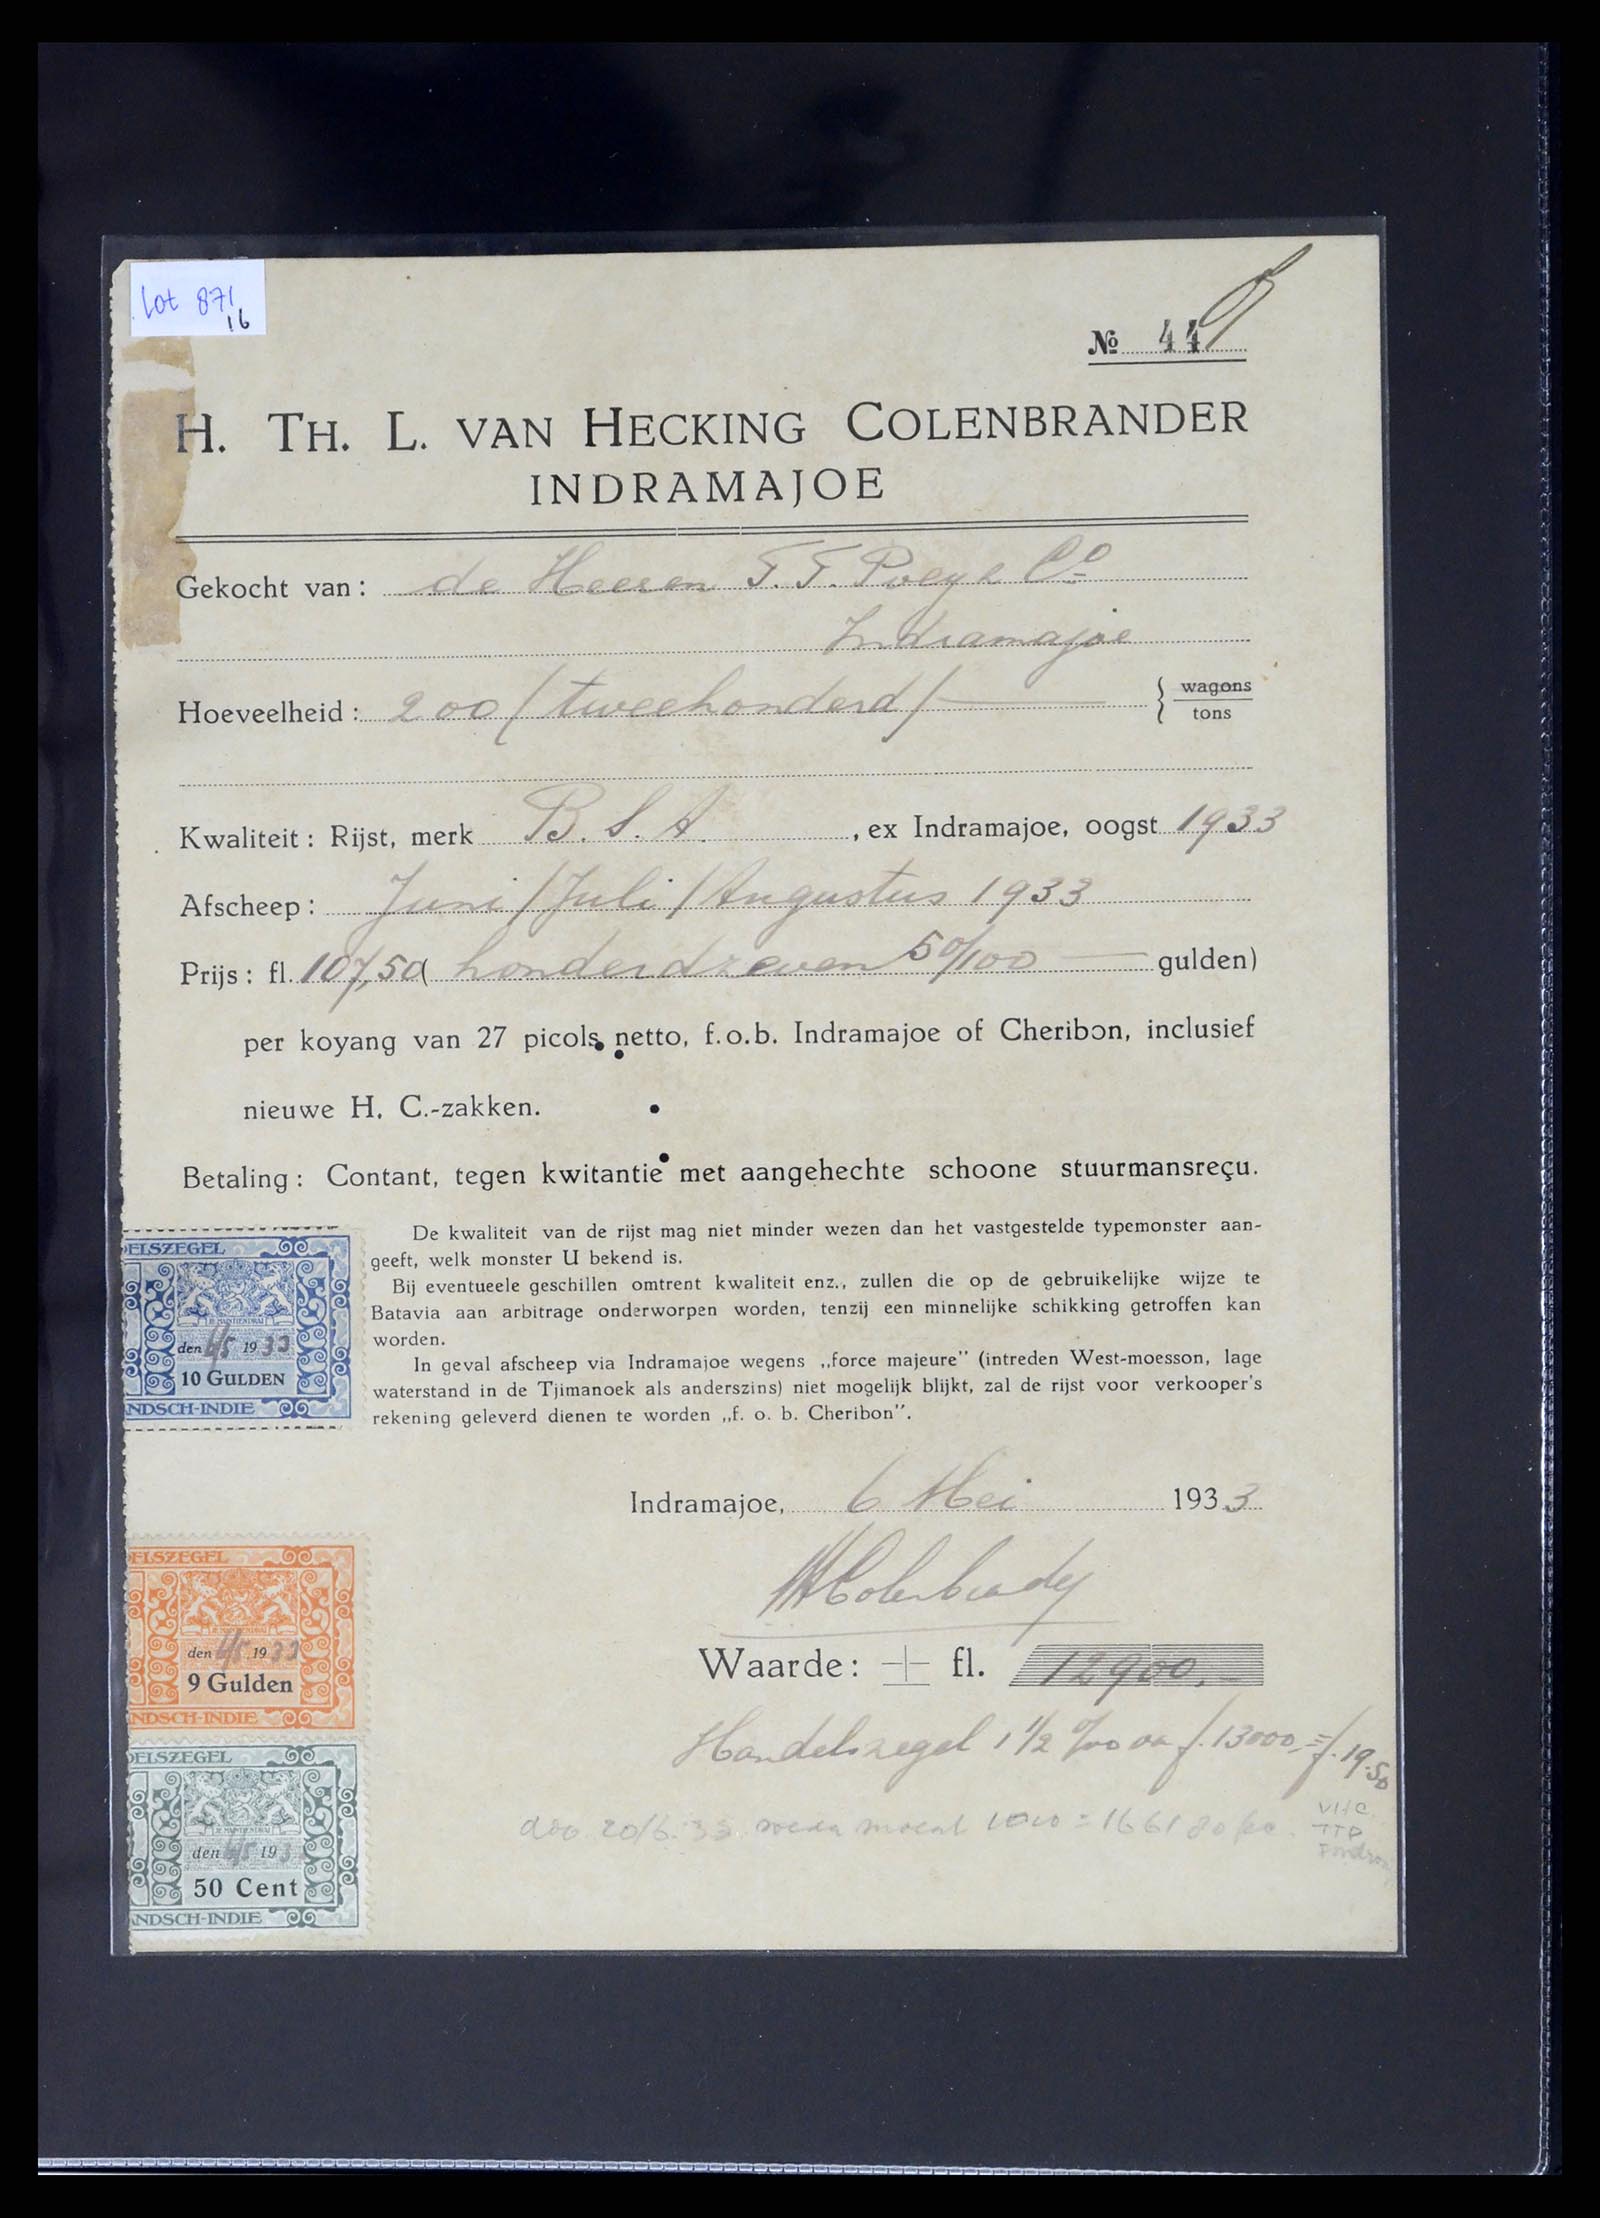 Lot 871
16
No 449
H. TH. L. VAN HECKING COLENBRANDER
INDRAMAJOE
Gekocht van: de Heeren T. T. & Co
Indramajoe
Hoeveelheid: 200 / tweehonderd / wagons
tons
Kwaliteit: Rijst, merk B. S. A. , ex Indramajoe, oogst 1933
Afscheep: Juni / Juli / Augustus 1933
Prijs: fl. 107,50 ( honderdzeven 50/100 — gulden)
per koyang van 27 picols netto, f.o.b. Indramajoe of Cheribon, inclusief
nieuwe H. C.-zakken.
Betaling: Contant, tegen kwitantie met aangehechte schoone stuurmansreçu.
De kwaliteit van de rijst mag niet minder wezen dan het vastgestelde typemonster aan-
geeft, welk monster U bekend is.
Bij eventueele geschillen omtrent kwaliteit enz., zullen die op de gebruikelijke wijze te
Batavia aan arbitrage onderworpen worden, tenzij een minnelijke schikking getroffen kan
worden.
In geval afscheep via Indramajoe wegens „force majeure” (intreden West-moesson, lage
waterstand in de Tjimanoek als anderszins) niet mogelijk blijkt, zal de rijst voor verkooper's
rekening geleverd dienen te worden „f. o. b. Cheribon”.
DELSZEGEL
JE MAINTIENDRAI
den 6/5 1933
10 GULDEN
NDSCH-INDIE
Indramajoe, 6 Mei 1933
HColenbrander
Waarde: + fl. 12900.-
Handelszegel 1 1/2 ‰ van f. 13000,- = f. 19.50
DELSZEGEL
JE MAINTIENDRAI
den 6/5 1933
9 Gulden
NDSCH-INDIE
DELSZEGEL
JE MAINTIENDRAI
den 6/5 193
50 Cent
NDSCH-INDIE
20/6.33